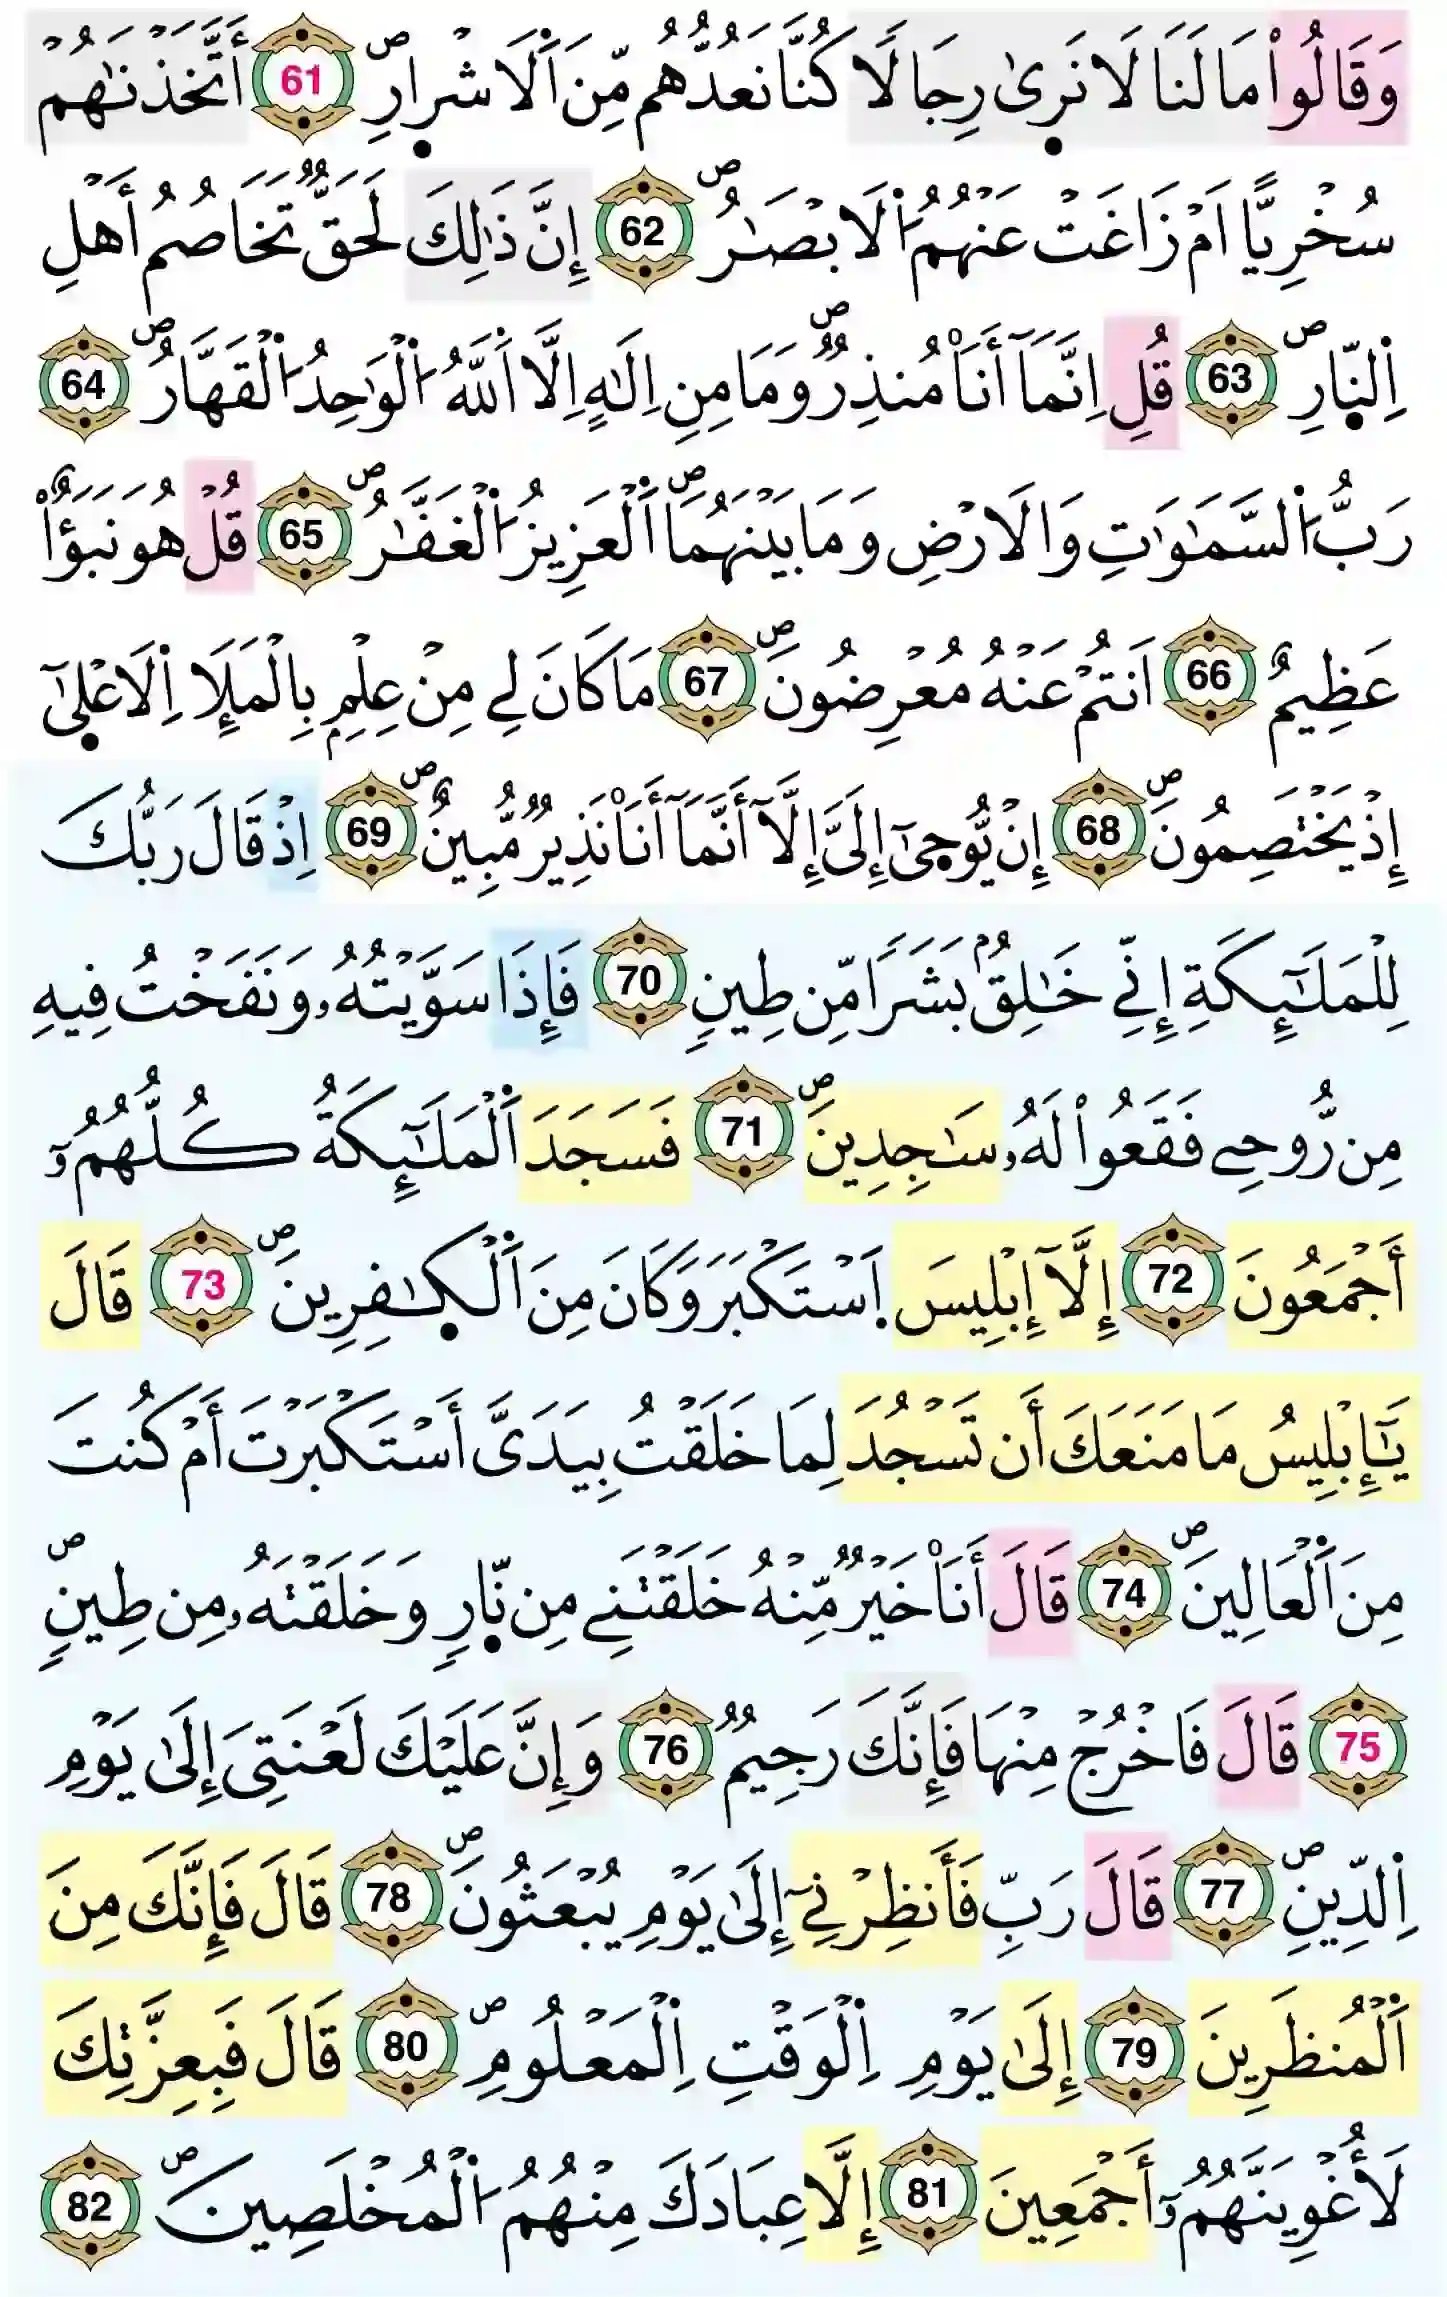 وَقَالُواْ مَا لَنَا لَا نَر۪ىٰ رِجَالاٗ كُنَّا نَعُدُّهُم مِّنَ اَ۬لَاشْر۪ارِۖ 61 أَتَّخَذْنَٰهُمْ
سُخْرِيّاً اَمْ زَاغَتْ عَنْهُمُ اُ۬لَابْصَٰرُۖ 62 إِنَّ ذَٰلِكَ لَحَقّٞ تَخَاصُمُ أَهْلِ
اِ۬لنّ۪ارِۖ 63 قُلِ اِنَّمَآ أَنَا۠ مُنذِرٞۖ وَمَا مِنِ اِلَٰهٍ اِلَّا اَ۬للَّهُ اُ۬لْوَٰحِدُ اُ۬لْقَهَّارُۖ 64
رَبُّ اُ۬لسَّمَٰوَٰتِ وَالَارْضِ وَمَا بَيْنَهُمَاۖ اَ۬لْعَزِيزُ اُ۬لْغَفَّٰرُۖ 65 قُلْ هُوَ نَبَؤٌاْ
عَظِيمٌ 66 اَنتُمْ عَنْهُ مُعْرِضُونَۖ 67 مَا كَانَ لِے مِنْ عِلْمِۢ بِالْمَلَإِ اِ۬لَاعْل۪يٰٓ
إِذْ يَخْتَصِمُونَۖ 68 إِنْ يُّوح۪يٰٓ إِلَيَّ إِلَّآ أَنَّمَآ أَنَا۠ نَذِيرٞ مُّبِينٌۖ 69 اِذْ قَالَ رَبُّكَ
لِلْمَلَٰٓئِكَةِ إِنِّے خَٰلِقُۢ بَشَراٗ مِّن طِينٖ 70 فَإِذَا سَوَّيْتُهُۥ وَنَفَخْتُ فِيهِ
مِن رُّوحِے فَقَعُواْ لَهُۥ سَٰجِدِينَۖ 71 فَسَجَدَ اَ۬لْمَلَٰٓئِكَةُ كُلُّهُمُۥٓ
أَجْمَعُونَ 72 إِلَّآ إِبْلِيسَ اَ۪سْتَكْبَرَ وَكَانَ مِنَ اَ۬لْكٰ۪فِرِينَۖ 73 قَالَ
يَٰٓإِبْلِيسُ مَا مَنَعَكَ أَن تَسْجُدَ لِمَا خَلَقْتُ بِيَدَيَّ أَسْتَكْبَرْتَ أَمْ كُنتَ
مِنَ اَ۬لْعَالِينَۖ 74 قَالَ أَنَا۠ خَيْرٞ مِّنْهُ خَلَقْتَنِے مِن نّ۪ارٖ وَخَلَقْتَهُۥ مِن طِينٖۖ
75 قَالَ فَاخْرُجْ مِنْهَا فَإِنَّكَ رَجِيمٞ 76 وَإِنَّ عَلَيْكَ لَعْنَتِيَ إِلَىٰ يَوْمِ
اِ۬لدِّينِۖ 77 قَالَ رَبِّ فَأَنظِرْنِےٓ إِلَىٰ يَوْمِ يُبْعَثُونَۖ 78 قَالَ فَإِنَّكَ مِنَ
اَ۬لْمُنظَرِينَ 79 إِلَىٰ يَوْمِ اِ۬لْوَقْتِ اِ۬لْمَعْلُومِۖ 80 قَالَ فَبِعِزَّتِكَ
لَأُغْوِيَنَّهُمُۥٓ أَجْمَعِينَ 81 إِلَّا عِبَادَكَ مِنْهُمُ اُ۬لْمُخْلَصِينَۖ 82